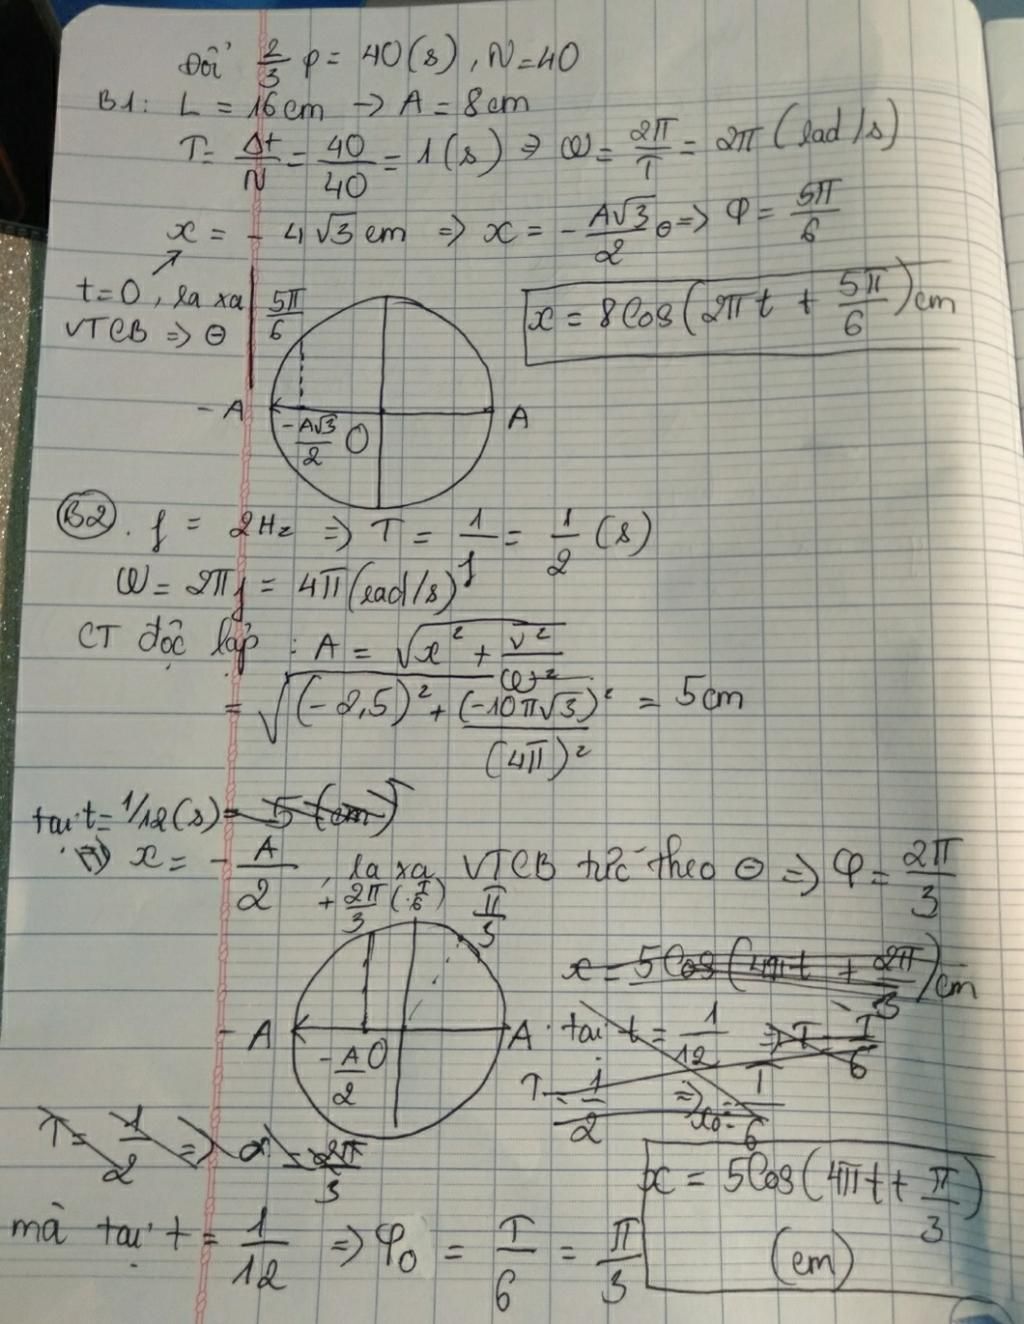 Đổi 2/3 p = 40(s), N=40
B1: L = 16cm → A = 8cm
T = Δt/N = 40/40 = 1(s) ⇒ ω = 2π/T = 2π (rad/s)
x = - 4√3 cm ⇒ x = - A√3/2 ⊖ ⇒ φ = 5π/6
t=0, ra xa
VTCB ⇒ ⊖
5π/6
x = 8cos(2πt + 5π/6)cm
- A
A
-A√3/2
O
B2. f = 2Hz ⇒ T = 1/f = 1/2 (s)
ω = 2πf = 4π(rad/s)
CT độc lập : A = √x² + v²/ω²
= √(-2,5)² + (-10π√3)²/(4π)² = 5cm
tại t = 1/12(s) = 5 (cm)
⇒ x = - A/2, ra xa VTCB tức theo ⊖ ⇒ φ = 2π/3
+ 2π/3 (T/6)
π/3
x = 5cos(4πt + 2π/3)cm
- A
A
-A/2
O
tại t = 1/12 ⇒ T = T/6
T = 1/2 ⇒ x₀ = T/6
T = 1/2 ⇒ α = 2π/3
x = 5cos(4πt + π/3)
(cm)
mà tại t = 1/12 ⇒ φ₀ = T/6 = π/3